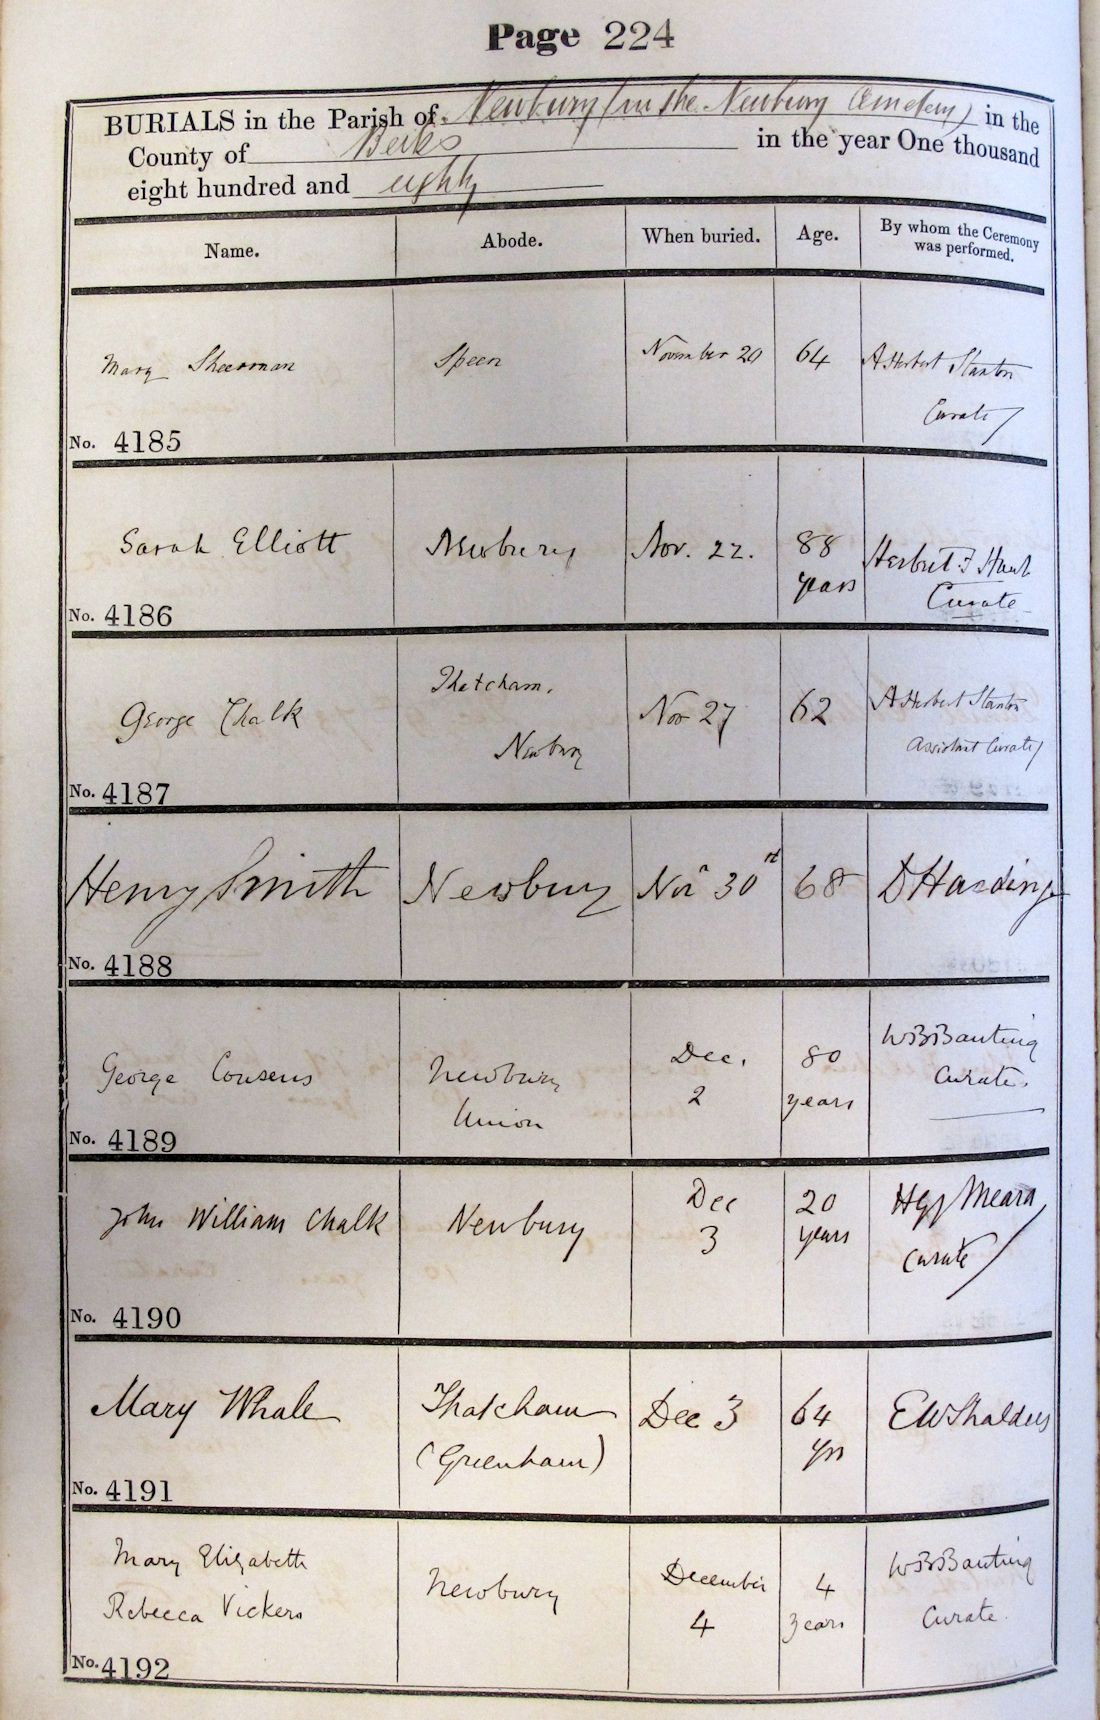 Page 224
BURIALS in the Parish of Newbury (in the Newbury Cemetery) in the
County of Berks in the year One thousand
eight hundred and eighty
Name. Abode. When buried. Age. By whom the Ceremony
was performed.
Mary Sheerman Speen November 20 64 A Herbert Stanton
Curate
No. 4185
Sarah Elliott Newbury Nov. 22. 88
years
Herbert F Hunt
Curate
No. 4186
George Chalk Thetcham,
Newbury
Nov 27 62 A Herbert Stanton
Assistant Curate
No. 4187
Henry Smith Newbury Nov 30 68 D Harding
No. 4188
George Cousens Newbury
Union
Dec.
2
80
years
W B Banting
Curate.
No. 4189
John William Chalk Newbury Dec
3
20
years
Meara
Curate
No. 4190
Mary Whale Thatcham
(Greenham)
Dec 3 64
yrs
E W Shalders
No. 4191
Mary Elizabeth
Rebecca Vickers
Newbury December
4
4
years
W B Banting
Curate.
No. 4192